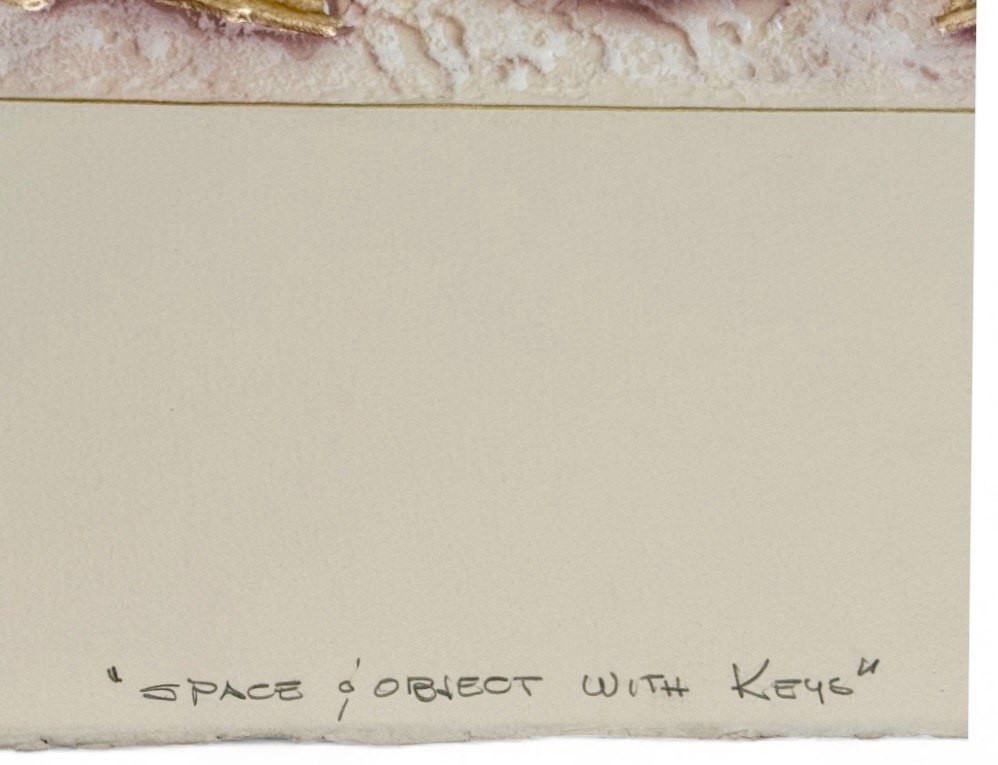 "SPACE & OBJECT WITH KEYS"